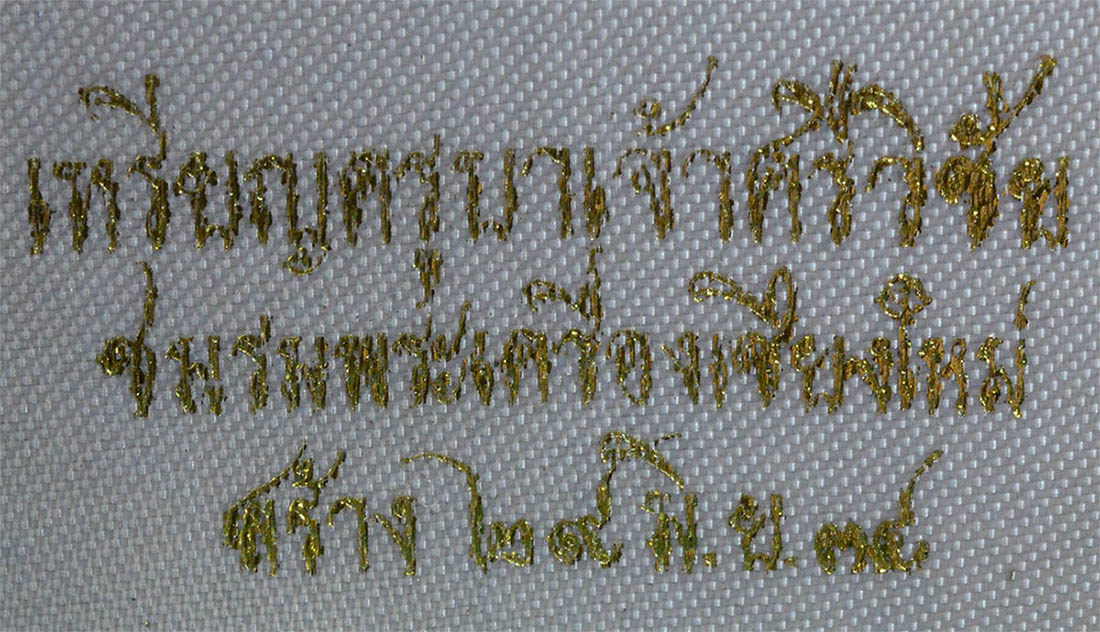 เหรียญครูบาเจ้าศรีวิชัย
ชมรมพระเครื่องเชียงใหม่
สร้าง ๒๙ มิ.ย.